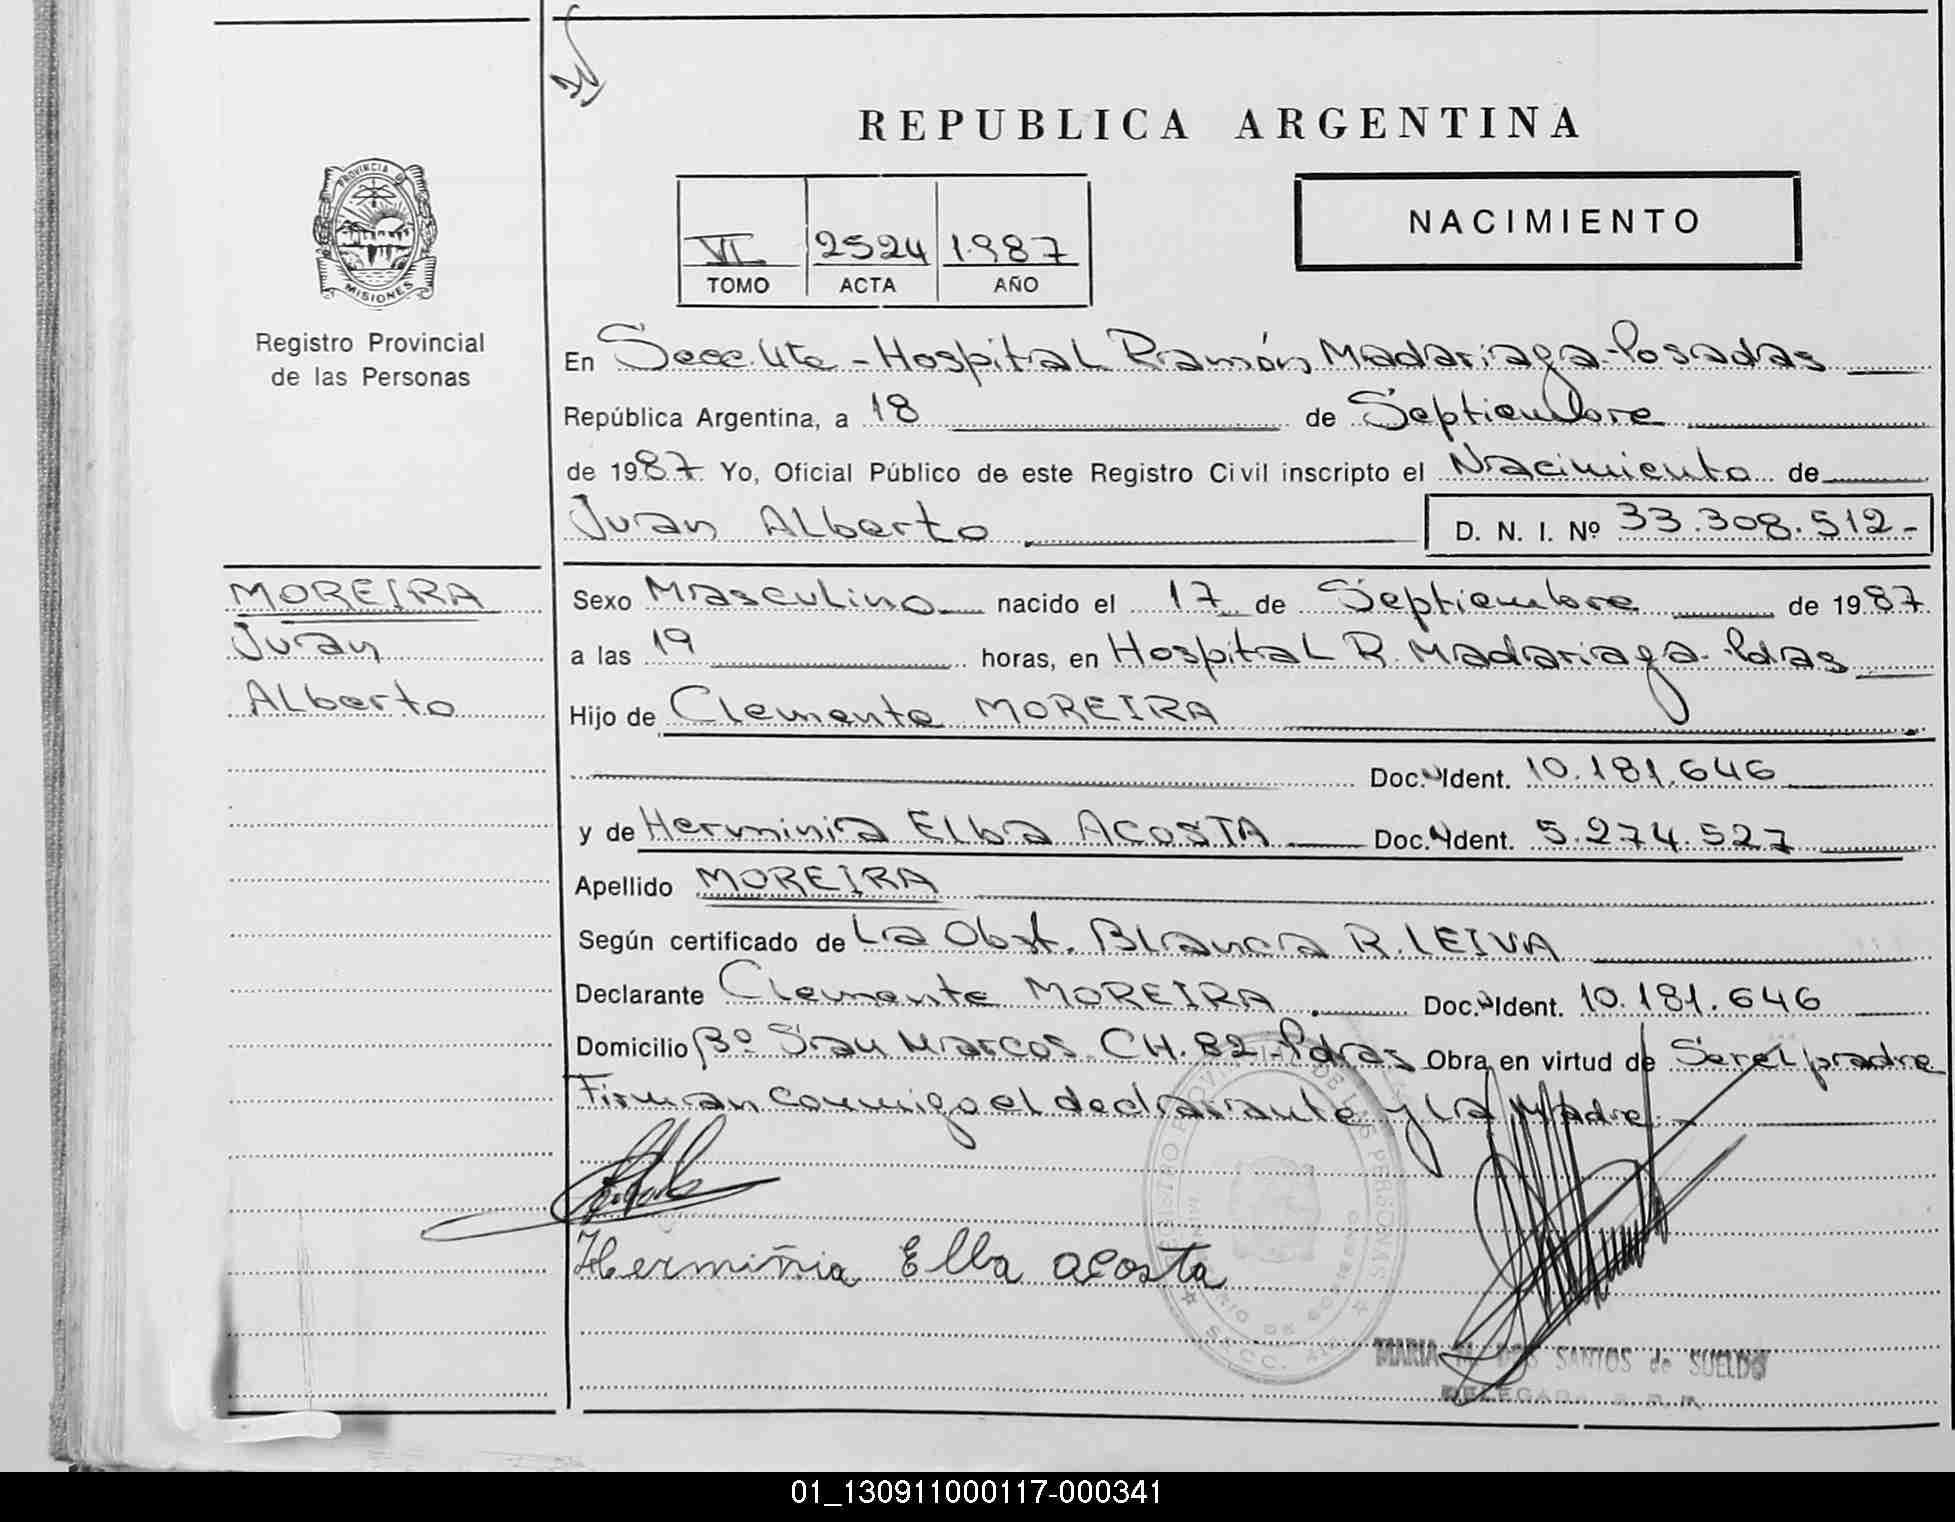 REPUBLICA ARGENTINA
PROVINCIA D
MISIONES
Registro Provincial
de las Personas
VI 2524 1987
TOMO ACTA AÑO
NACIMIENTO
En Secc. 4ta - Hospital Ramón Madariaga - Posadas
República Argentina, a 18 de Septiembre
de 1987 Yo, Oficial Público de este Registro Civil inscripto el Nacimiento de
Juan Alberto D. N. I. Nº 33.308.512-
MOREIRA
Juan
Alberto
Sexo Masculino nacido el 17 de Septiembre de 1987
a las 19 horas, en Hospital R. Madariaga - Pdas
Hijo de Clemente MOREIRA
Doc. Ident. 10.181.646
y de Herminia Elba ACOSTA Doc. Ident. 5.274.527
Apellido MOREIRA
Según certificado de La Obst. Blanca R. LEIVA
Declarante Clemente MOREIRA Doc. Ident. 10.181.646
Domicilio Bº San Marcos CH. 82 - Pdas Obra en virtud de Ser el padre
Firman conmigo el declarante y la Madre. -
Hermiñia Elba acosta
REGISTRO PROVINCIAL DE LAS PERSONAS
MARIA DOS SANTOS de SUELDO
DELEGADA
01_130911000117-000341